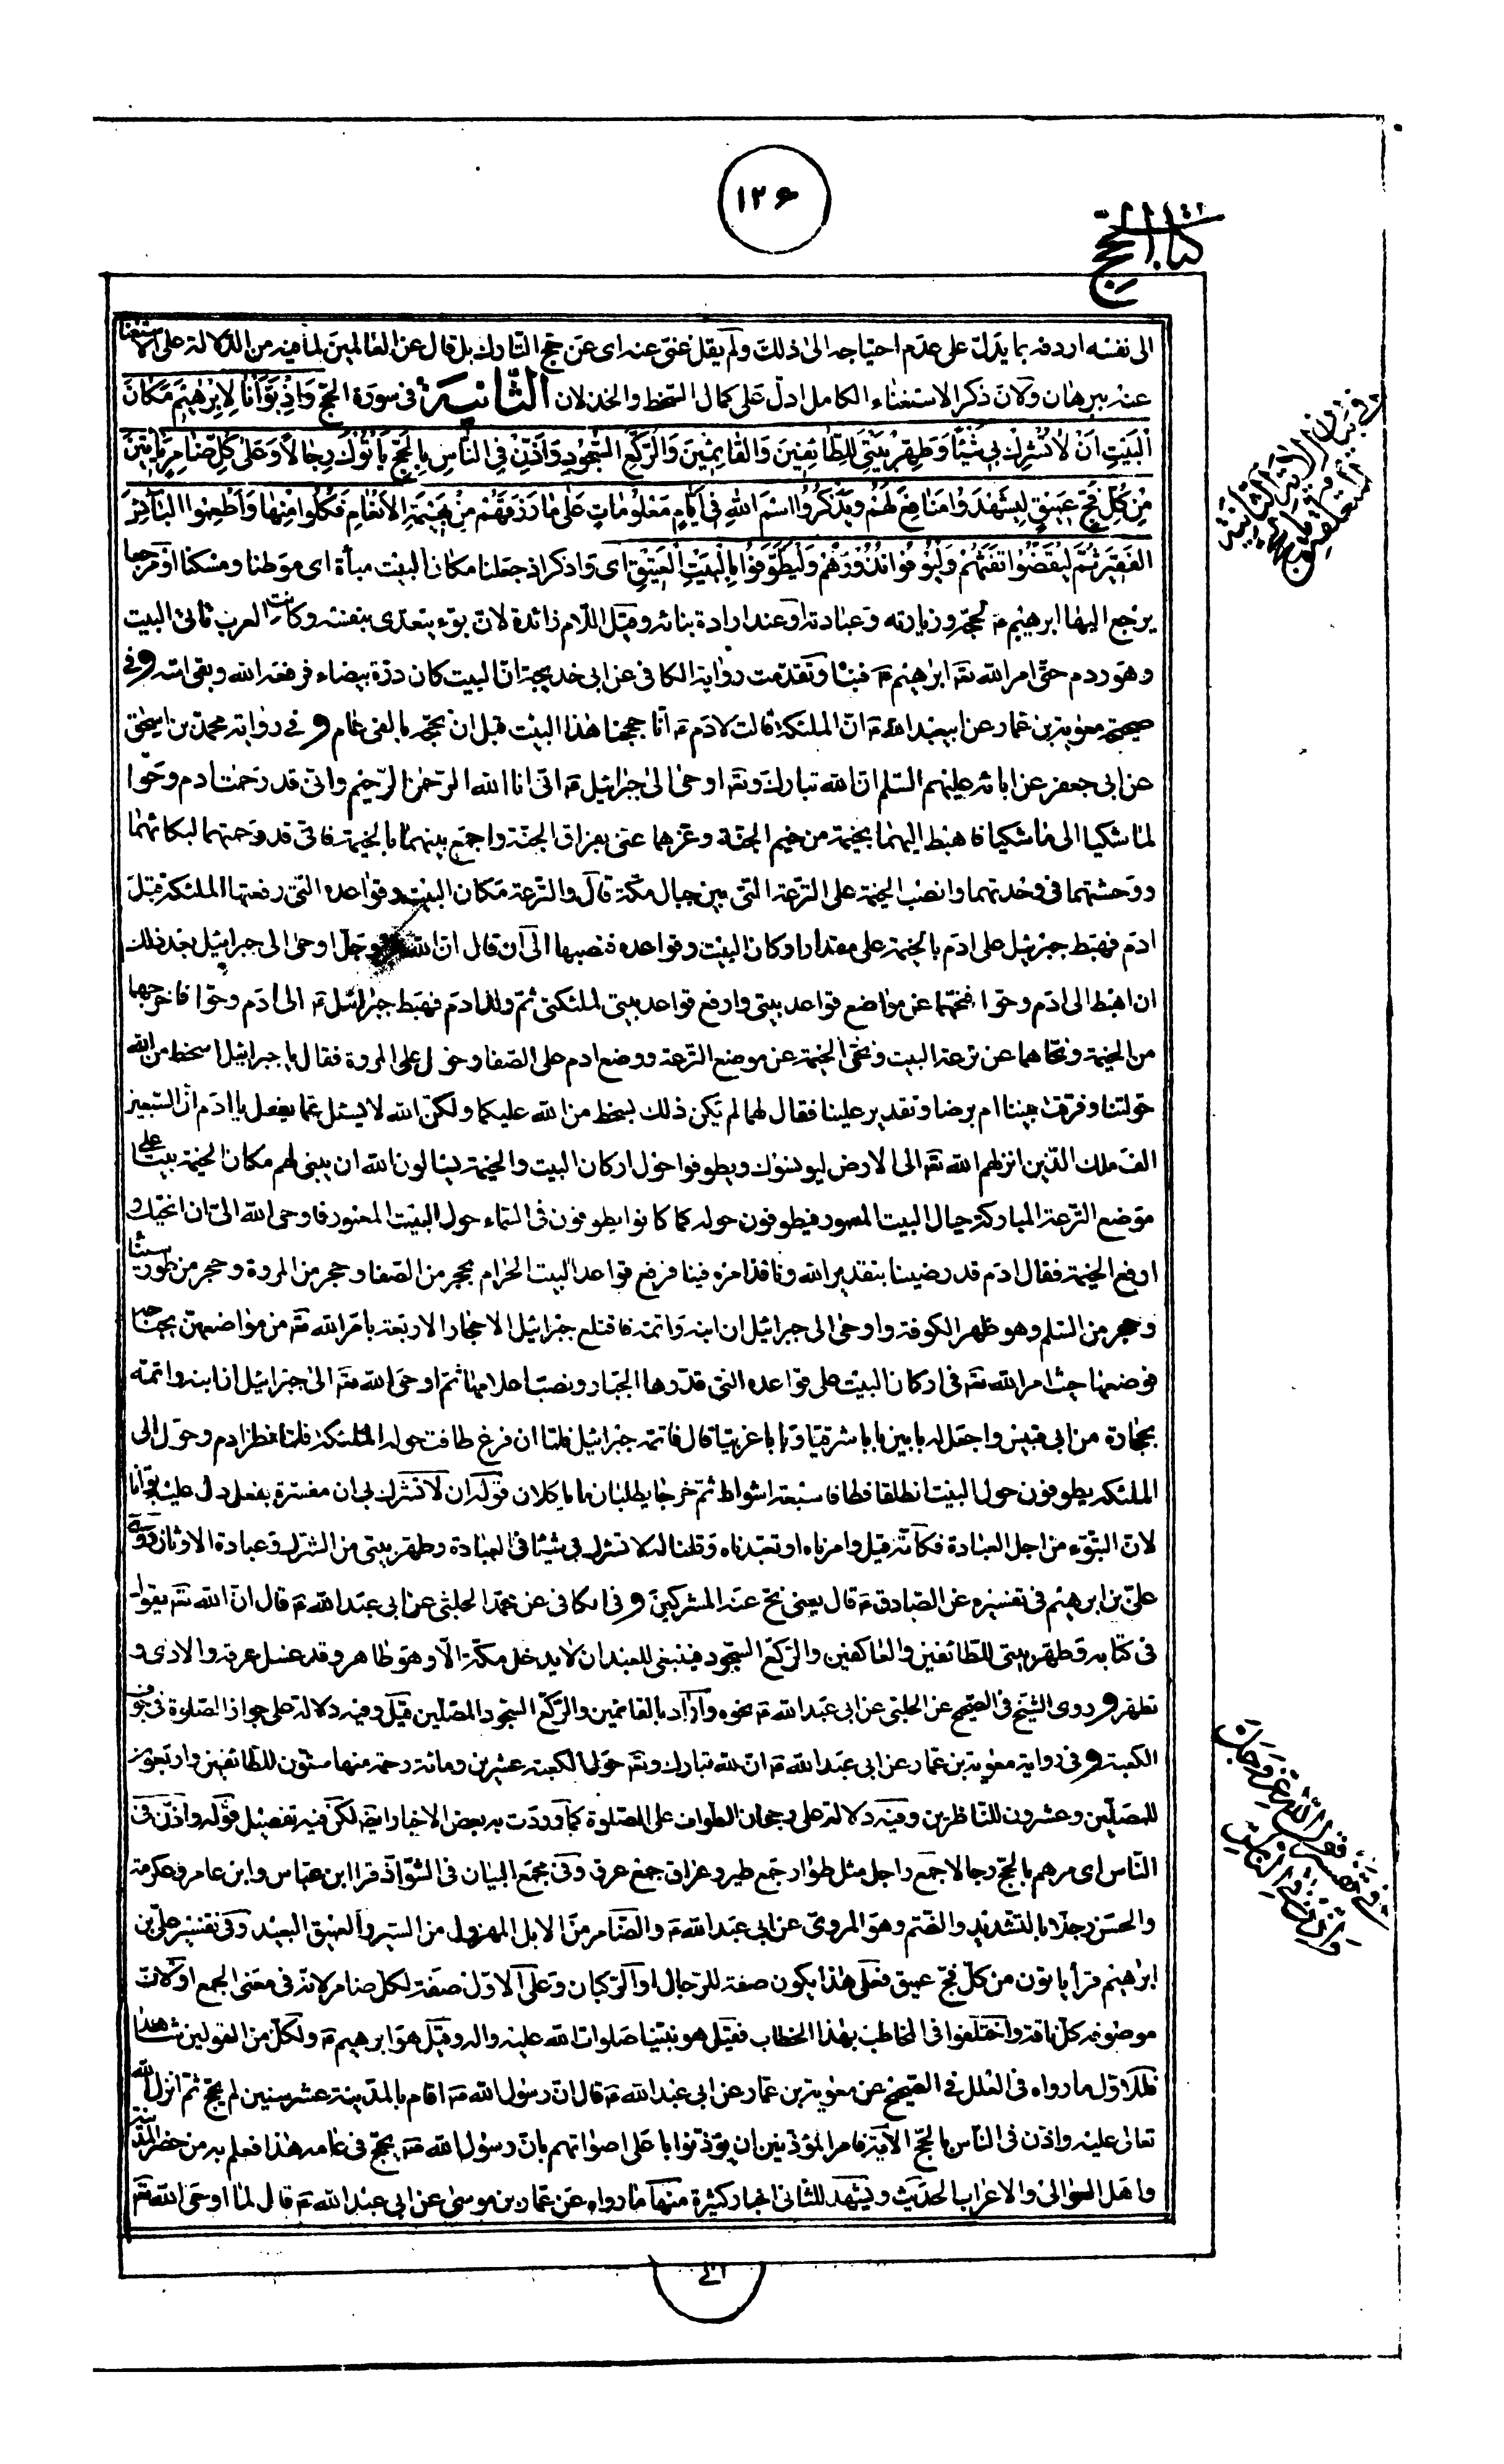 ١٢۶
كتاب الحج
الى نفسه اردفه بما يدلّ على عدم احتياجه الى ذلك ولم يقل غنىّ عنه اى عن حج التارك بل قال عن العالمين لما فيه من الدلالة على الاستغناء
عنه ببرهان ولانّ ذكر الاستغناء الكامل ادلّ على كمال السخط والخذلان الثّانية في سورة الحجّ وَاِذْ بَوَّأْنَا لِاِبْرٰهِيمَ مَكَانَ
الْبَيْتِ اَنْ لَا تُشْرِكْ بِي شَيْئًا وَطَهِّرْ بَيْتِيَ لِلطَّائِفِينَ وَالْقَائِمِينَ وَالرُّكَّعِ السُّجُودِ وَاَذِّنْ فِي النَّاسِ بِالْحَجِّ يَأْتُوكَ رِجَالًا وَعَلَى كُلِّ ضَامِرٍ يَأْتِينَ
مِنْ كُلِّ فَجٍّ عَمِيقٍ لِيَشْهَدُوا مَنَافِعَ لَهُمْ وَيَذْكُرُوا اسْمَ اللهِ فِي اَيَّامٍ مَعْلُومَاتٍ عَلَى مَا رَزَقَهُمْ مِنْ بَهِيمَةِ الْاَنْعَامِ فَكُلُوا مِنْهَا وَاَطْعِمُوا الْبَائِسَ
الْفَقِيرَ ثُمَّ لْيَقْضُوا تَفَثَهُمْ وَلْيُوفُوا نُذُورَهُمْ وَلْيَطَّوَّفُوا بِالْبَيْتِ الْعَتِيقِ اى واذكر اذ جعلنا مكان البيت مبأة اى موطنا ومسكنا او مرجعا
يرجع اليها ابرهيم ع لحجّه وزيارته وعبادته او عند ارادة بنائه وقيل اللام زائدة لان بوّء يتعدّى بنفسه وكانت العرب تأتى البيت
وهو ردم حتّى امر الله تعه ابرهيم ع فبناه وتقدمت رواية الكافى عن ابى خديجة انّ البيت كان درّة بيضاء فرفعه الله وبقى اسّه وفى
صحيحة معوية بن عمار عن ابيعبد الله ع انّ الملئكة قالت لادم ع انا حججنا هذا البيت قبل ان تحجّه بالفى عام وفى رواية محمد بن اسحق
عن ابى جعفر عن ابائه عليهم السّلم ان الله تبارك وتعه اوحى الى جبرائيل ع انى انا الله الرّحمن الرّحيم وانى قد رحمت ادم وحوّا
لما شكيا الى ما شكيا فاهبط اليهما بخيمة من خيم الجنّة وعزّهما عنى بفراق الجنّة واجمع بينهما بالخيمة فانى قد رحمتهما لبكائهما
ووحشتهما فى وحدتهما وانصب الخيمة على الترعة التى بين جبال مكّة قال والترعة مكان البيت وقواعده التى رفعتها الملئكة قبل
ادم فهبط جبرئيل على ادم بالخيمة على مقدار اركان البيت وقواعده فنصبها الى ان قال ان الله عزوجلّ اوحى الى جبرائيل بعد ذلك
ان اهبط الى ادم وحوا فنحّهما عن مواضع قواعد بيتى وارفع قواعد بيتى لملئكتى ثمّ ولد ادم فهبط جبرائيل ع الى ادم وحوّا فاخرجهما
من الخيمة ونحّاهما عن ترعة البيت ونحّى الخيمة عن موضع الترعة ووضع ادم على الصّفا وحوا على المروة فقال يا جبرائيل اسخط من الله
حوّلتنا وفرّقت بيننا ام برضا وتقدير علينا فقال لهما لم يكن ذلك بسخط من الله عليكما ولكن الله لا يسئل عمّا يفعل يا ادم انّ السبعين
الف ملك الذين انزلهم الله تعه الى الارض ليونسوك ويطوفوا حول اركان البيت والخيمة يسالون الله ان يبنى لهم مكان الخيمة بيتا على
موضع الترعة المباركة حيال البيت المعمور فيطوفون حوله كما كانوا يطوفون فى السّماء حول البيت المعمور فاوحى الله الىّ ان انحّيك و
ارفع الخيمة فقال ادم قد رضينا بتقدير الله ونافذ امره فينا فرفع قواعد البيت الحرام بحجر من الصّفا وحجر من المروة وحجر من طور سينا
وحجر من السّلم وهو ظهر الكوفة واوحى الى جبرائيل ان ابنه واتمّه فاقتلع جبرائيل الاحجار الاربعة بامر الله تعه من مواضعهنّ بجناحه
فوضعها حيث امر الله تعه فى اركان البيت على قواعده التى قدّرها الجبّار ونصب اعلامها ثمّ اوحى الله تعه الى جبرائيل ان ابنه واتمّه
بحجارة من ابى قبيس واجعل له بابين بابا شرقيّا وبابا غربيّا قال فاتمّه جبرائيل فلمّا ان فرغ طافت حوله الملئكة فلمّا نظر ادم وحوّا الى
الملئكة يطوفون حول البيت انطلقا فطافا سبعة اشواط ثمّ خرجا يطلبان ما ياكلان قوله ان لا تشرك بى ان مفسّرة بفعل دلّ عليه بوّأنا
لانّ التبوّء من اجل العبادة فكانّه قيل وامرناه او تعبّدناه وقلنا له لا تشرك بى شيئا فى العبادة وطهّر بيتى من الشرك وعبادة الاوثان روى
علىّ بن ابرهيم فى تفسيره عن الصّادق ع قال يعنى نحّ عنه المشركين وفى الكافى عن محمّد الحلبى عن ابى عبد الله ع قال انّ الله تعه يقول
فى كتابه وطهّر بيتى للطائفين والعاكفين والرّكّع السجود فينبغى للعبد ان لا يدخل مكّة الّا وهو طاهر وقد غسل عرقه والاذى و
تطهّر وروى الشيخ فى الصّحيح عن الحلبى عن ابى عبد الله ع نحوه واراد بالقائمين والرّكّع السجود المصلّين قيل وفيه دلالة على جواز الصّلوة فى جوف
الكعبة وفى رواية معوية بن عمار عن ابى عبد الله ع ان لله تبارك وتعه حول الكعبة عشرين ومائة رحمة منها ستّون للطائفين واربعون
للمصلّين وعشرون للنّاظرين وفيه دلالة على رجحان الطواف على الصّلوة كما وردت به بعض الاخبار ايضا لكن فيه تفصيل قوله واذّن فى
النّاس اى مرهم بالحجّ رجالا جمع راجل مثل طوار جمع طير وعراق جمع عرق وفى مجمع البيان فى الشّواذّ قرا ابن عباس وابن عامر وعكرمة
والحسن رجالا بالتشديد والضّم وهو المروى عن ابى عبد الله ع والضّامر من الابل المهزول من السير والعميق البعيد وفى تفسير علىّ بن
ابرهيم قرأ ياتون من كلّ فجّ عميق فعلى هذا يكون صفة للرّجال او الرّكبان وعلى الاوّل صفة لكلّ ضامر لانّه فى معنى الجمع او لانّ
موصوفه كل ناقة واختلفوا فى المخاطب بهذا الخطاب فقيل هو نبيّنا صلوات الله عليه واله وقيل هو ابرهيم ع ولكلّ من القولين شاهدا
فللاوّل ما رواه فى العلل فى الصّحيح عن معوية بن عمار عن ابى عبد الله ع قال ان رسول الله صه اقام بالمدينة عشر سنين لم يحجّ ثمّ انزل الله
تعالى عليه واذن فى النّاس بالحجّ الاية فامر المؤذّنين ان يؤذّنوا با على اصواتهم بانّ رسول الله صه يحجّ فى عامه هذا فعلم به من حضر المدينة
واهل العوالى والاعراب الحديث ويشهد للثانى اخبار كثيرة منها ما رواه عن عمار بن موسى عن ابى عبد الله ع قال لما اوحى الله تعه
فى بيان الاية الثانية